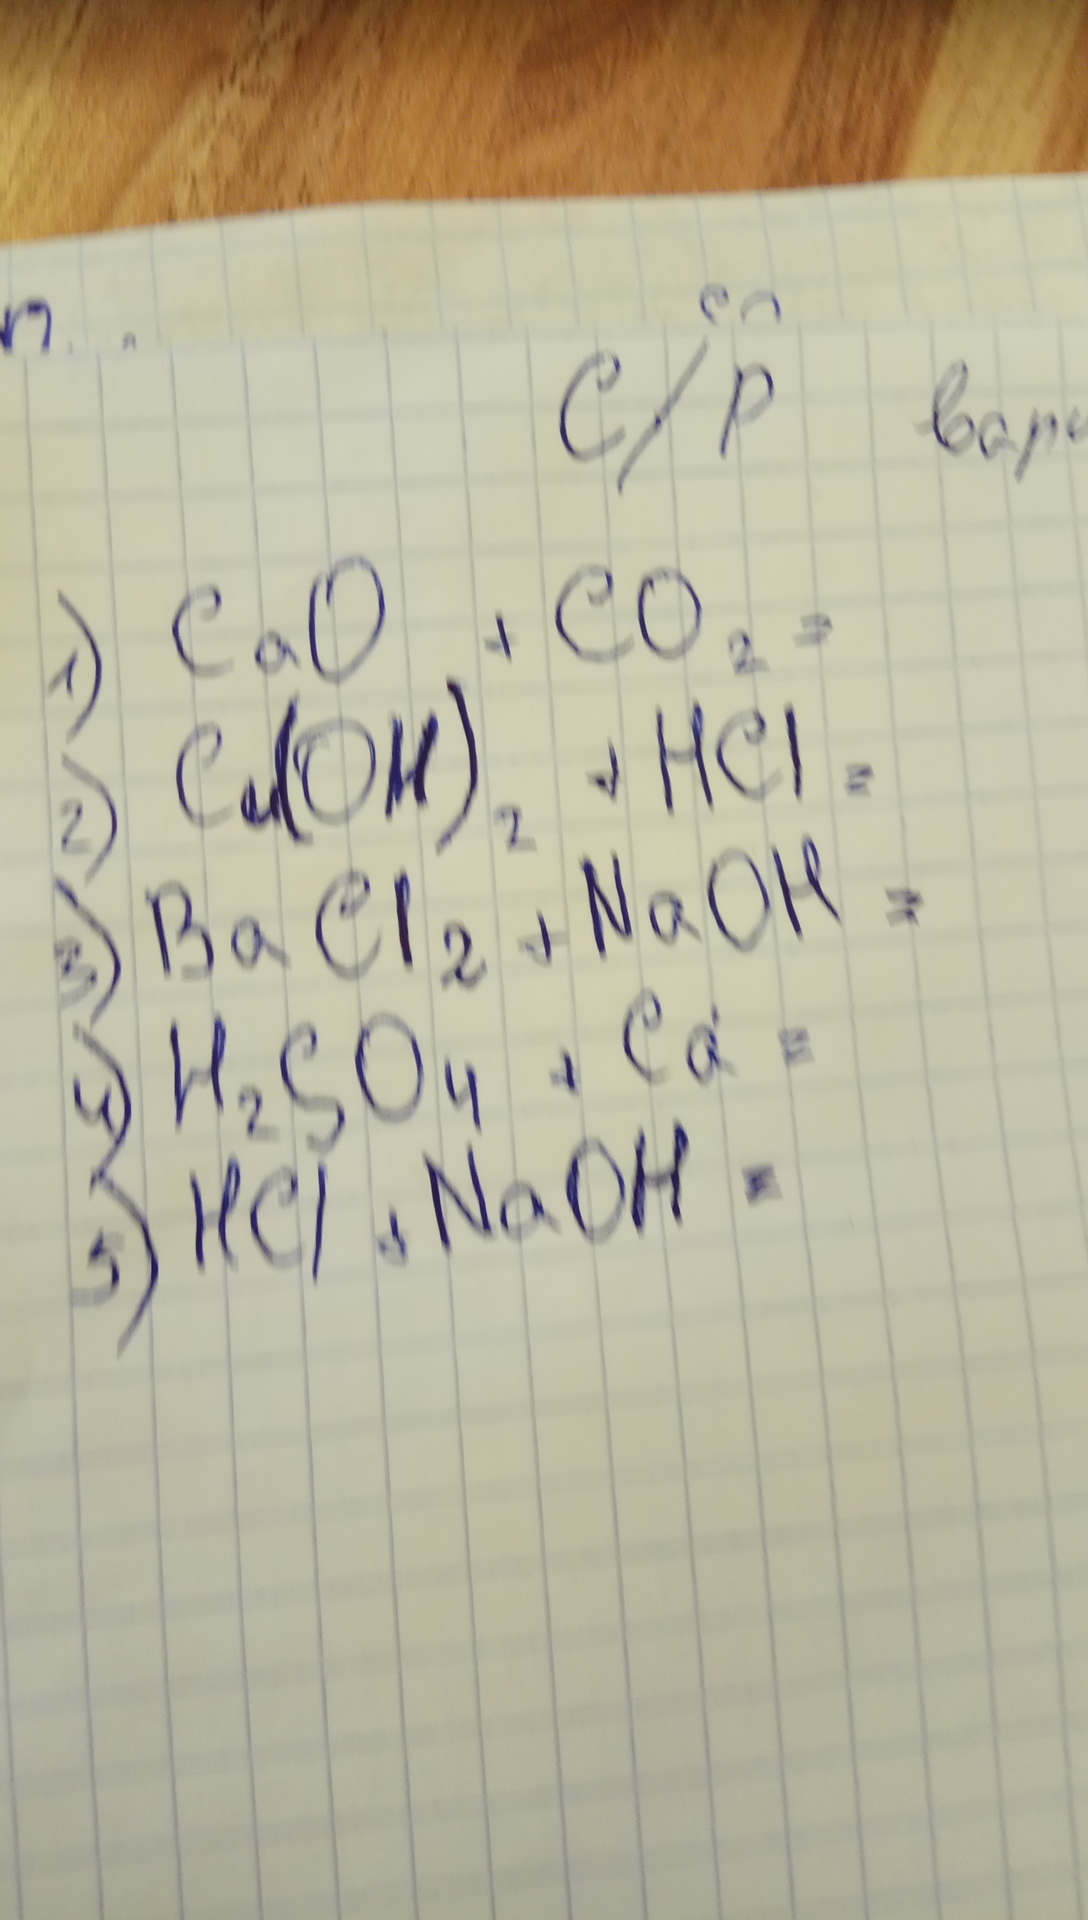 п.
С/Р вари
1) CaO + CO2 =
2) Cu(OH)2 + HCl =
3) BaCl2 + NaOH =
4) H2SO4 + Ca =
5) HCl + NaOH =